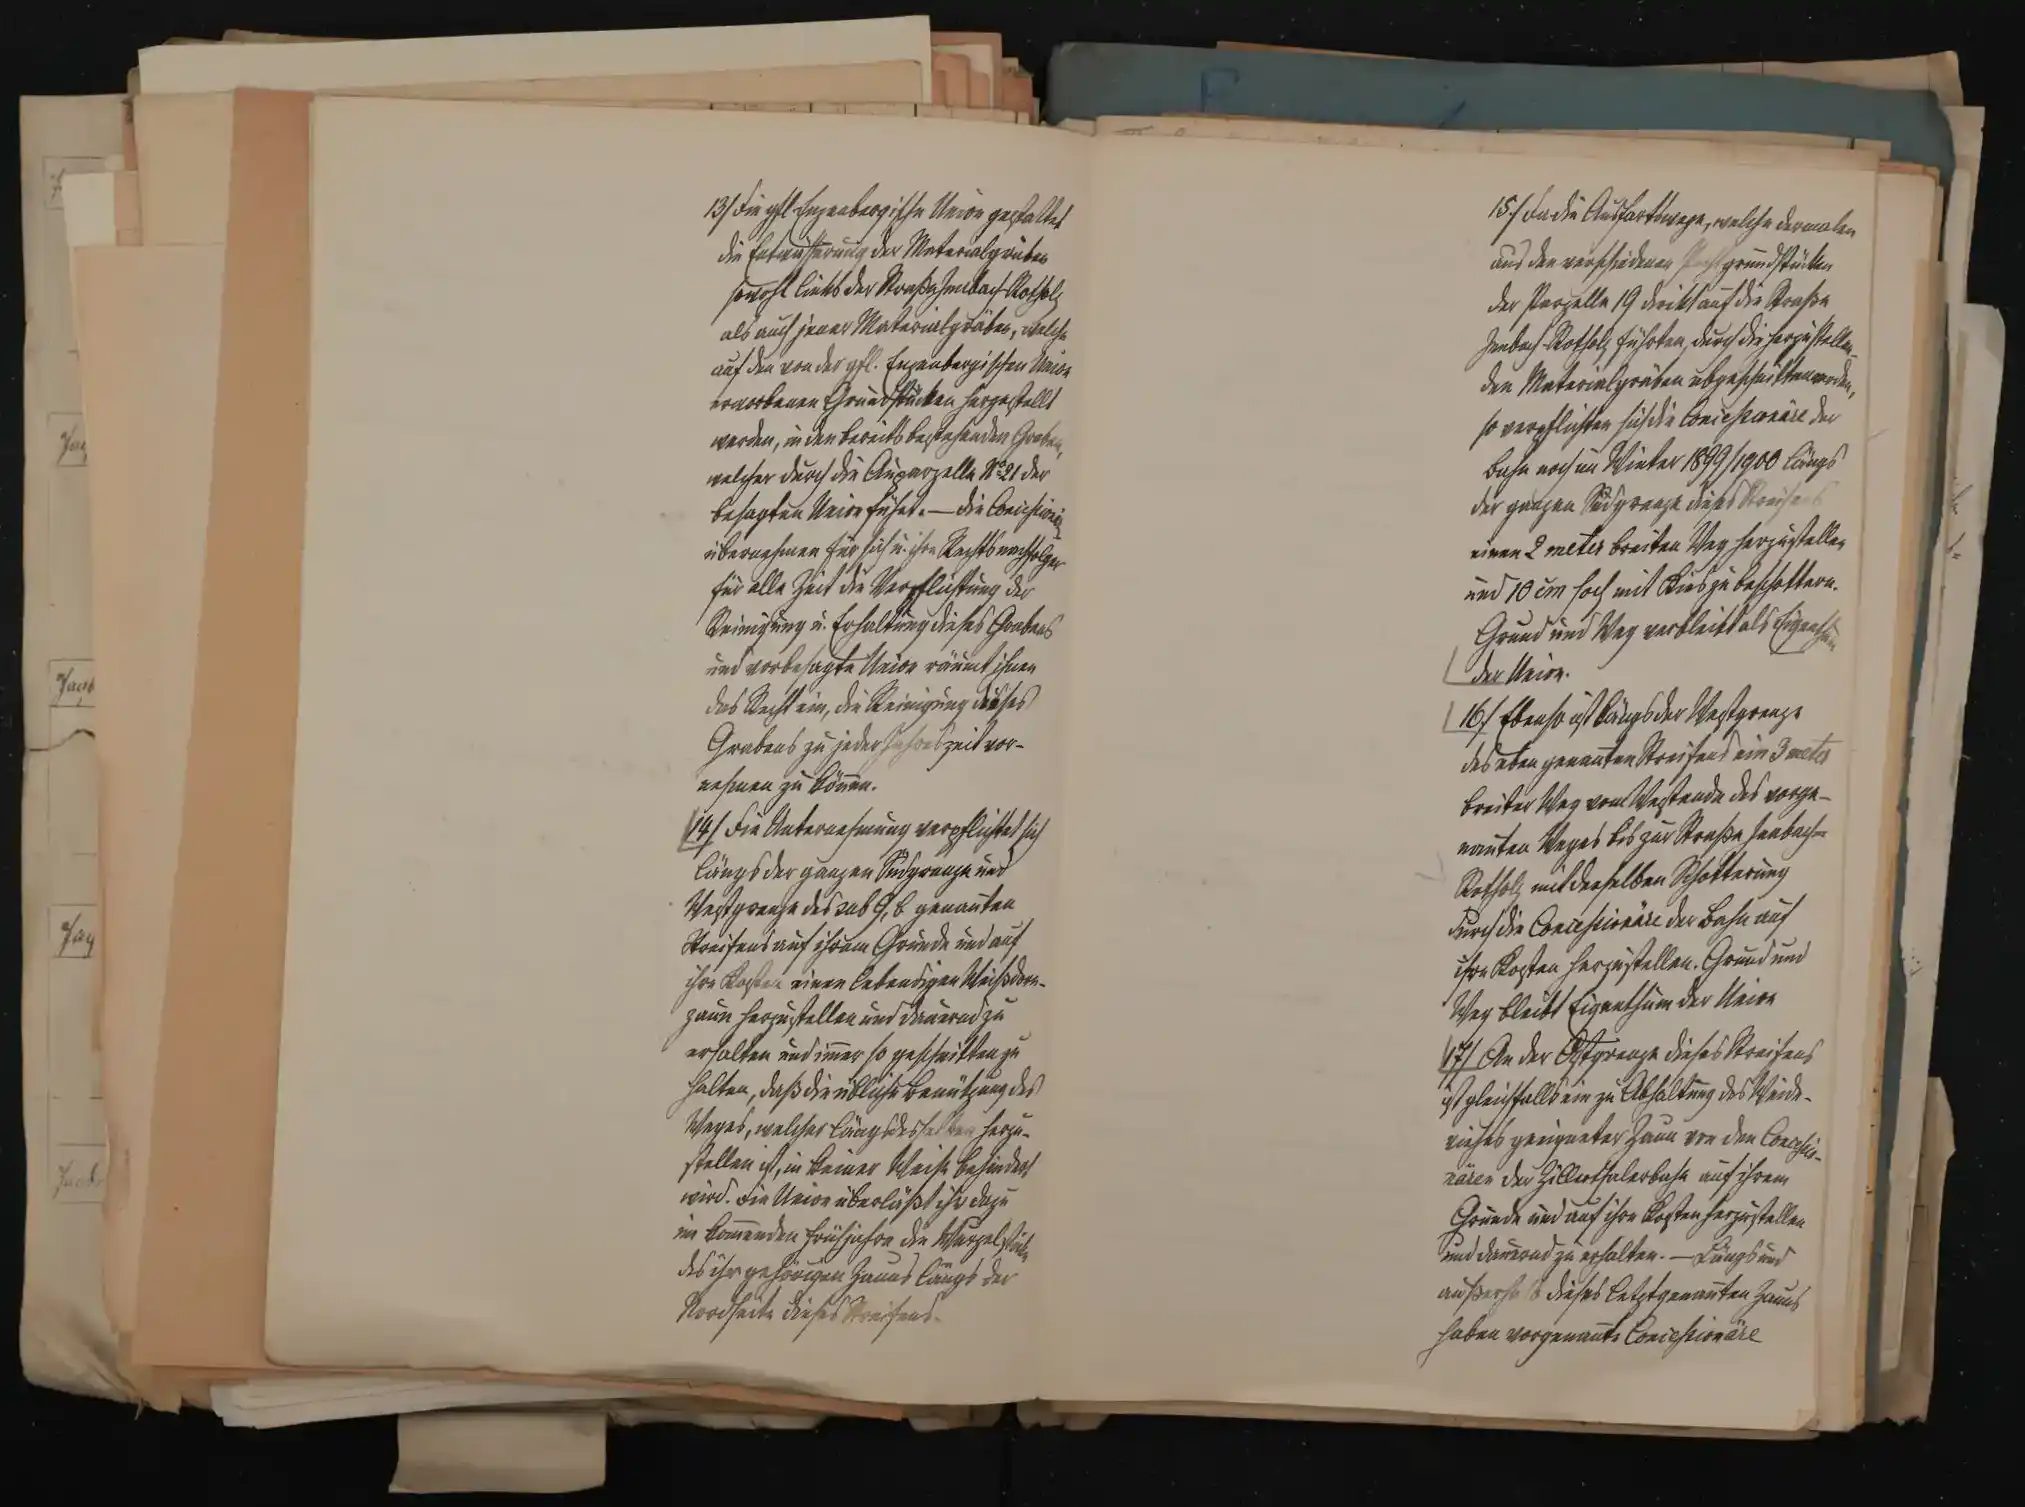 13/ Die gfl. Enzenbergische Union gestattet
die Entwässerung der Materialgräben
sowohl links der Straße Jenbach-Rotholz
als auch jener Materialgräben, welche
auf den von der gfl. Enzenbergischen Union
erworbenen Grundstücken hergestellt
werden, in den bereits bestehenden Graben,
welcher durch die Auparzelle No 21 der
besagten Union führt. — Die Concessionäre
übernehmen für sich u. ihre Rechtsnachfolger
für alle Zeit die Verpflichtung der
Reinigung u. Erhaltung dieses Grabens
und vorbesagte Union räumt ihnen
das Recht ein, die Reinigung dieses
Grabens zu jeder Jahreszeit vor-
nehmen zu können.
14/ Die Unternehmung verpflichtet sich
längs der ganzen Südgrenze und
Westgrenze des sub 9, b genannten
Streifens auf ihrem Grunde und auf
ihre Kosten einen lebendigen Weißdorn-
zaun herzustellen und dauernd zu
erhalten und immer so geschnitten zu
halten, daß die übliche Benützung des
Weges, welcher längs desselben herzu-
stellen ist, in keiner Weise behindert
wird. Die Union überläßt ihr dazu
im kommenden Frühjahre die Wurzelstöcke
des ihr gehörigen Zauns längs der
Nordseite dieses Streifens.
15/ Da die Ausfahrtswege, welche dermalen
aus den verschiedenen Pachtgrundstücken
der Parzelle 19 direkt auf die Straße
Jenbach-Rotholz führten, durch die herzustellen-
den Materialgräben abgeschnitten werden,
so verpflichten sich die Concessionäre der
Bahn noch im Winter 1899/1900 längs
der ganzen Südgrenze dieses Streifens
einen 2 meter breiten Weg herzustellen
und 10 cm hoch mit Kies zu beschottern.
Grund und Weg verbleibt als Eigenthum
der Union.
16/ Ebenso ist längs der Westgrenze
des eben genannten Streifens ein 3 meter
breiter Weg vom Westende des vorge-
nannten Weges bis zur Straße Jenbach-
Rotholz mit derselben Schotterung
durch die Concessionäre der Bahn auf
ihre Kosten herzustellen. Grund und
Weg bleibt Eigenthum der Union
17/ An der Ostgrenze dieses Streifens
ist gleichfalls ein zu Abhaltung des Weide-
viehes geeigneter Zaun von den Concessio-
nären der Zillerthalerbahn auf ihrem
Grunde und auf ihre Kosten herzustellen
und dauernd zu erhalten. — Längs und
außerhalb dieses letztgenannten Zauns
haben vorgenannte Concessionäre